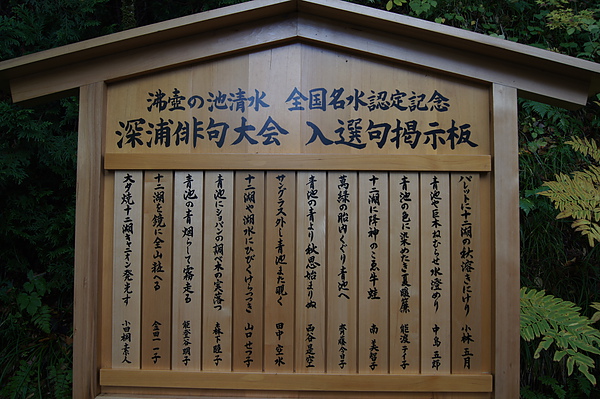 沸壺の池清水 全国名水認定記念
深浦俳句大会 入選句掲示板
パレットに十二湖の秋溶きにけり 小林 五月
青池や巨木ねむらせ水澄めり 中島 五郎
青池の色に染めたき夏暖簾 能渡 テイ子
十二湖に降神のこゑ牛蛙 南 美智子
萬緑の胎内くぐり青池へ 齊藤 今日子
青池の青より秋思始まりぬ 西谷 是空
サングラス外し青池また覗く 田中 空水
十二湖や湖水にひびくけらつつき 山口 せつ子
青池にショパンの調べ木の実落つ 森下 睦子
青池の青烟らして霧走る 能登谷 明子
十二湖を鏡に全山粧へる 金田 一子
大夕焼十二湖キャニオン発光す 小田桐 素人